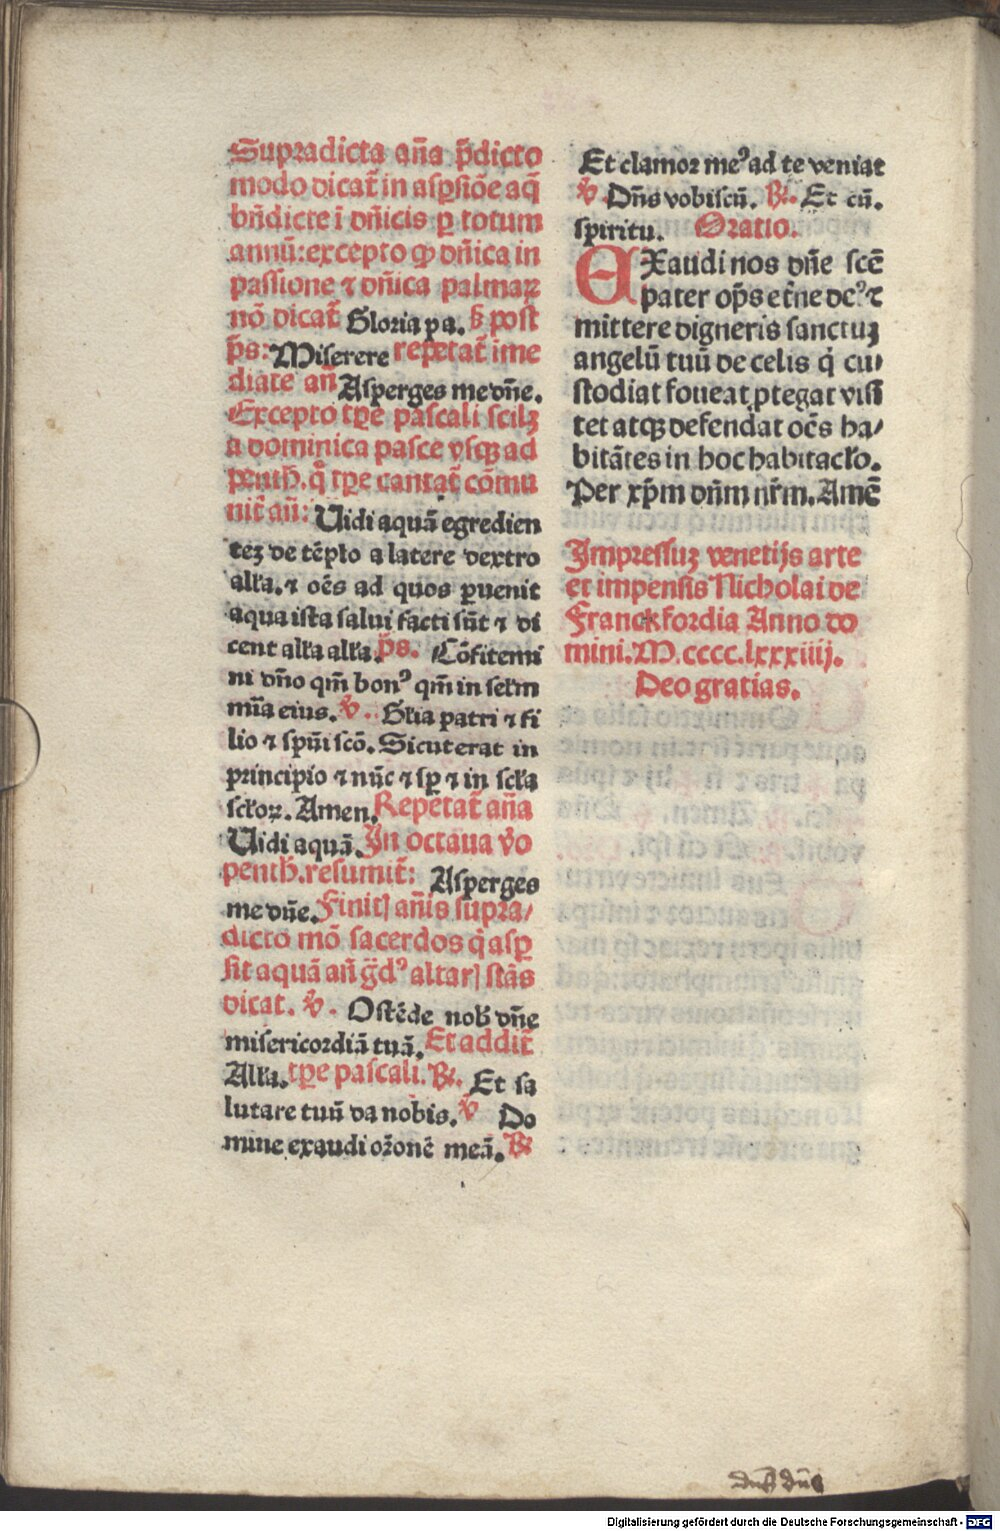 Supradicta an̄a p̄dicto
modo dicat̄ in asꝑsiōe aq̄
bn̄dicte ī dn̄icis ꝑ totum
annū: excepto ꝙ dn̄ica in
passione ⁊ dn̄ica palmaꝝ
nō dicat̄ Gloria pa. ß post
p̄s: Miserere repetat̄ ime
diate an̄ Asperges me dn̄e.
Excepto tꝑe pascali scilꝫ
a dominica pasce vsqꝫ ad
penth. q̊ tꝑe cantat̄ cōmu
nit̄ an̄: Uidi aquā egredien
teꝫ de tēplo a latere dextro
alła. ⁊ oēs ad quos ꝑuenit
aqua ista salui facti sūt ⁊ di
cent alła alła. p̄s. Cōfitemi
ni dn̄o qm̄ bonꝰ qm̄ in sełm
mīa eius. ℣. Głia patri ⁊ fi
lio ⁊ spūi scō. Sicut erat in
principio ⁊ nūc ⁊ sꝑ ⁊ in scła
scłoꝝ. Amen. Repetat̄ an̄a
Uidi aquā. In octaua v̊o
penth. resumit̄: Asperges
me dn̄e. Finitꝭ an̄is supra/
dicto mō sacerdos q̇ asꝑ
sit aquā an̄ g̈dꝰ altarꝭ stās
dicat. ℣. Ostēde nob̄ dn̄e
misericordiā tuā. Et addit̄
Alła. tꝑe pascali. ℟. Et sa
lutare tuū da nobis. ℣ Do
mine exaudi or̄onē meā. ℟
Et clamor meꝰ ad te veniat
℣ Dn̄s vobiscū. ℟. Et cū.
spiritu. Oratio.
EXaudi nos dn̄e scē
pater op̄s et̄ne deꝰ ⁊
mittere digneris sanctuꝫ
angelū tuū de celis q̇ cu/
stodiat foueat ꝓtegat visi
tet atqꝫ defendat oēs ha/
bitātes in hoc habitacło.
Per xp̄m dn̄m nr̄m. Amē
Impressuꝫ venetijs arte
et impensis Nicholai de
Franckfordia Anno do
mini. M.cccc.lxxxiiij.
Deo gratias.
Digitalisierung gefördert durch die Deutsche Forschungsgemeinschaft - DFG